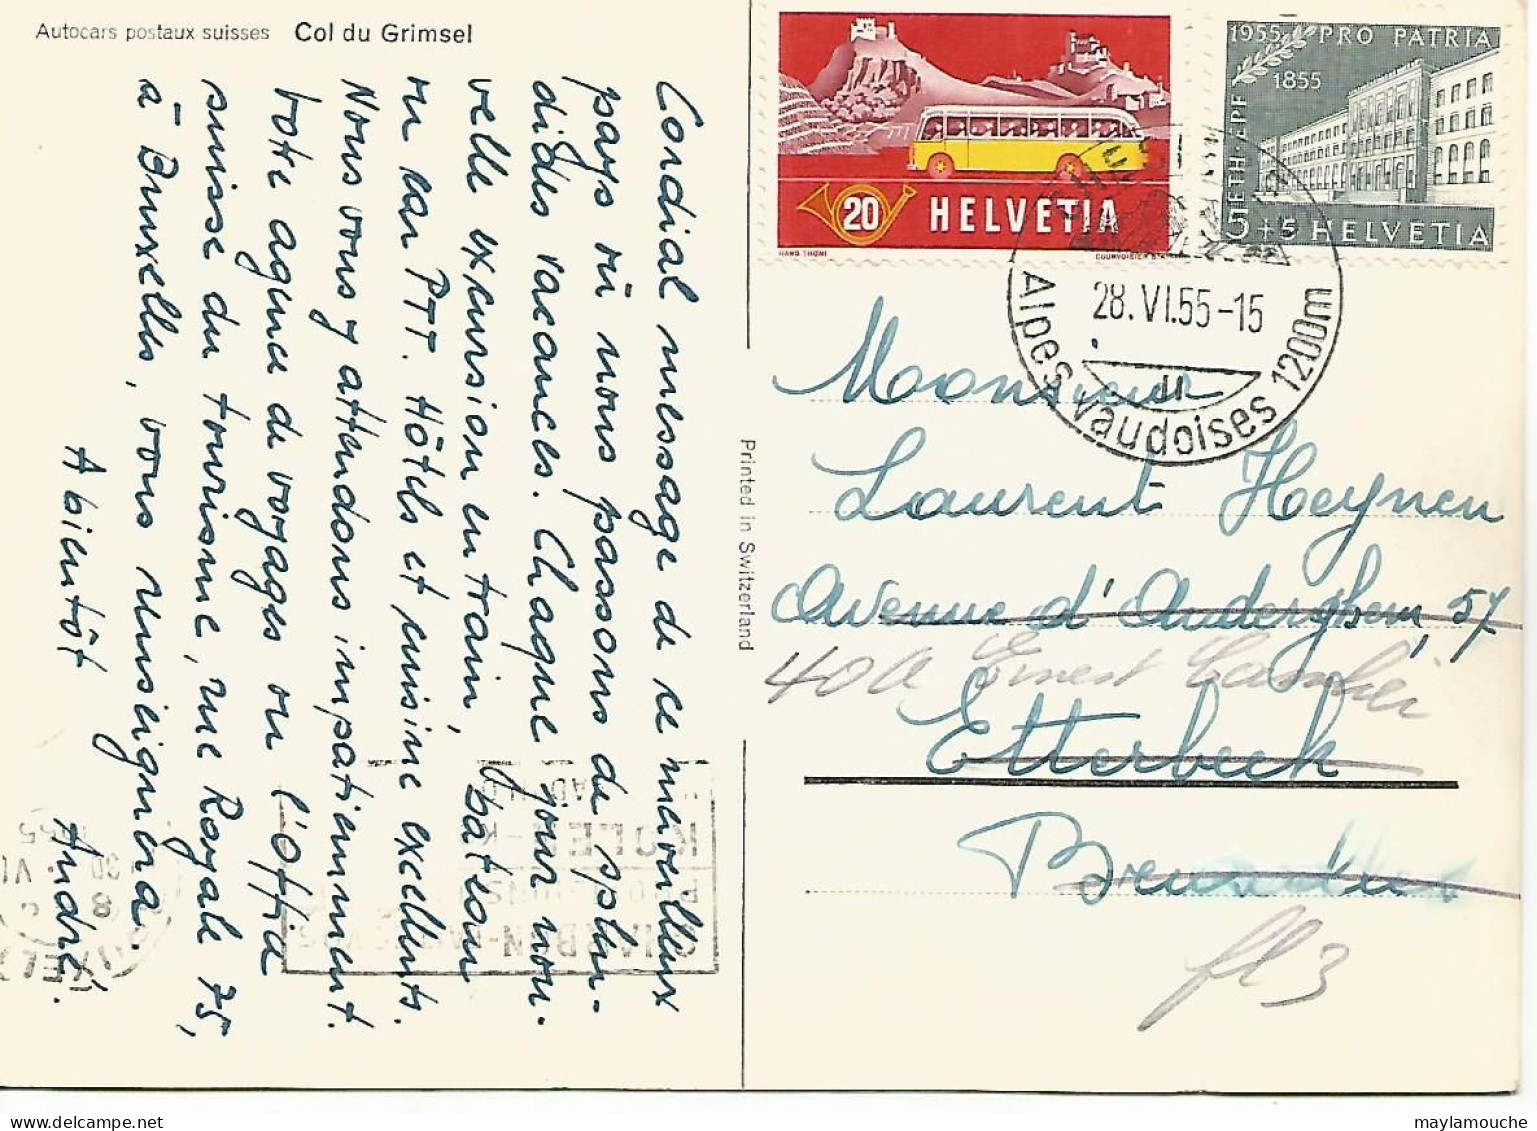 Autocars postaux suisses Col du Grimsel
Cordial message de ce merveilleux
pays où nous passons de splen-
dides vacances. Chaque jour nou-
velle excursion en train, bateau
ou car PTT. Hôtels et cuisine excellents.
Nous vous y attendons impatiemment.
Votre agence de voyages ou l'Office
suisse du tourisme, rue Royale 75,
à Bruxelles, vous renseignera.
A bientôt André.
Printed in Switzerland
20 HELVETIA
HANS THÖNI COURVOISIER
1955 PRO PATRIA
1855
ETH-EPF
5+5 HELVETIA
28.VI.55-15
Alpes vaudoises 1200m
Monsieur
Laurent Heynen
Avenue d'Auderghem, 57
40A Ernest Cambier
Etterbeek
Bruxelles
fl 3
maylamouche